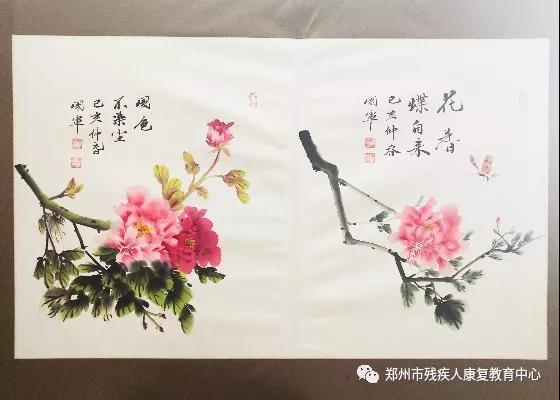 花香
蝶自来
己亥仲冬
國軍
國色
不染尘
己亥仲春
國軍
郑州市残疾人康复教育中心